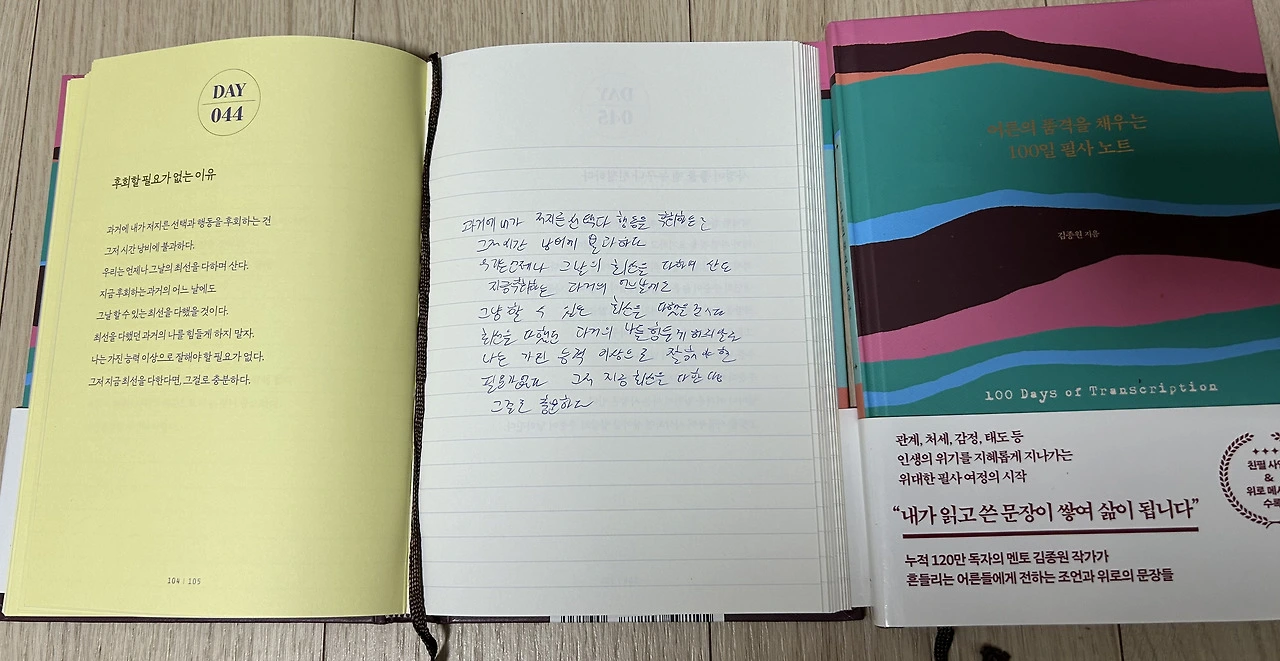 DAY
044
후회할 필요가 없는 이유
과거에 내가 저지른 선택과 행동을 후회하는 건
그저 시간 낭비에 불과하다.
우리는 언제나 그날의 최선을 다하며 산다.
지금 후회하는 과거의 어느 날에도
그날 할 수 있는 최선을 다했을 것이다.
최선을 다했던 과거의 나를 힘들게 하지 말자.
나는 가진 능력 이상으로 잘해야 할 필요가 없다.
그저 지금 최선을 다한다면, 그걸로 충분하다.
104 / 105
과거에 내가 저지른 선택과 행동을 후회하는
그저 시간 낭비에 불과하다
언제나 그날의 최선을 다하며 산다
지금 후회하는 과거의 어느날에도
그날 할 수 있는 최선을
최선을 다했던 과거의 나를 힘들게 하지말자
나는 가진 능력 이상으로 잘해야 할
필요가 없다 그저 지금 최선을 다한다면
그걸로 충분하다
어른의 품격을 채우는
100일 필사 노트
김종원 지음
100 Days of Transcription
관계, 처세, 감정, 태도 등
인생의 위기를 지혜롭게 지나가는
위대한 필사 여정의 시작
“내가 읽고 쓴 문장이 쌓여 삶이 됩니다”
누적 120만 독자의 멘토 김종원 작가가
흔들리는 어른들에게 전하는 조언과 위로의 문장들
친필
&
위로